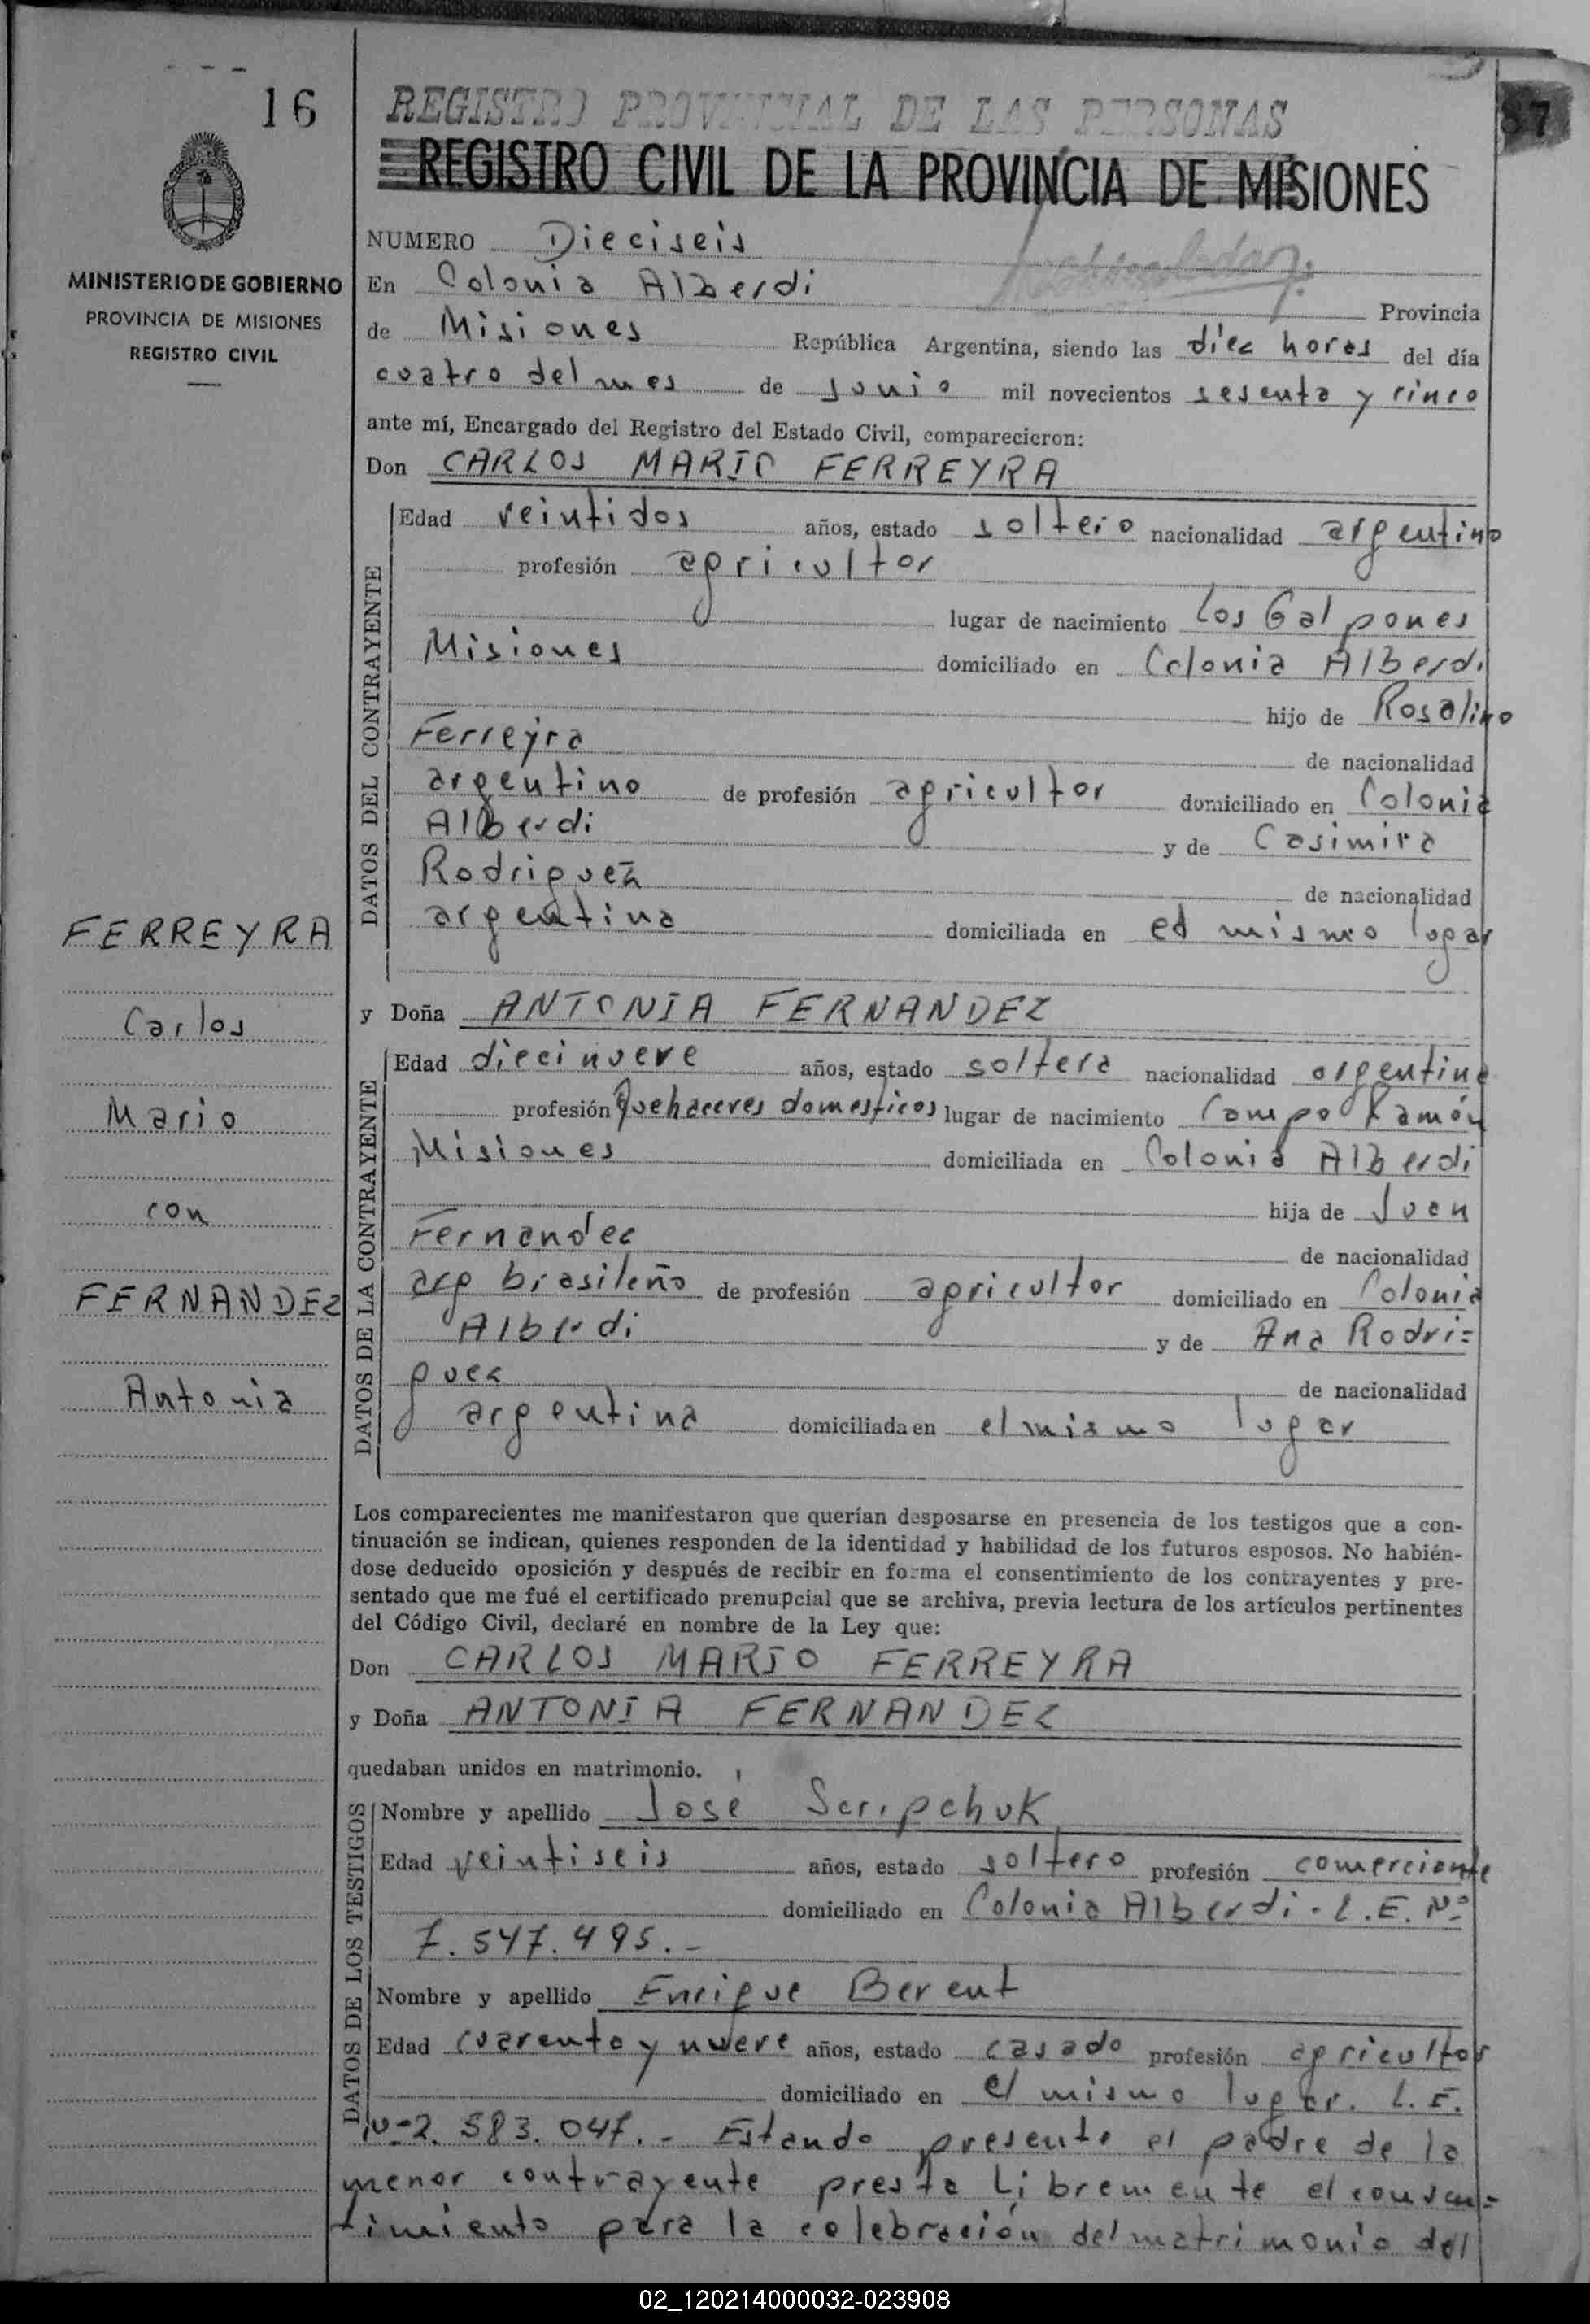 16
REGISTRO PROVINCIAL DE LAS PERSONAS
37
REGISTRO CIVIL DE LA PROVINCIA DE MISIONES
MINISTERIO DE GOBIERNO
PROVINCIA DE MISIONES
REGISTRO CIVIL
NUMERO Dieciseis
En Colonia Alberdi Provincia
de Misiones República Argentina, siendo las diez horas del día
cuatro del mes de Junio mil novecientos sesenta y cinco
ante mí, Encargado del Registro del Estado Civil, comparecieron:
Don CARLOS MARIO FERREYRA
DATOS DEL CONTRAYENTE
Edad veintidos años, estado soltero nacionalidad argentino
profesión agricultor
lugar de nacimiento Los Galpones
Misiones domiciliado en Colonia Alberdi
hijo de Rosalino
Ferreyra de nacionalidad
argentino de profesión agricultor domiciliado en Colonia
Alberdi y de Casimira
Rodriguez de nacionalidad
argentina domiciliada en el mismo lugar
y Doña ANTONIA FERNANDEZ
DATOS DE LA CONTRAYENTE
Edad diecinueve años, estado soltera nacionalidad argentina
profesión Quehaceres domesticos lugar de nacimiento Campo Ramón
Misiones domiciliada en Colonia Alberdi
hija de Juan
Fernandez de nacionalidad
arg brasileño de profesión agricultor domiciliado en Colonia
Alberdi y de Ana Rodri=
guez de nacionalidad
argentina domiciliada en el mismo lugar
FERREYRA
Carlos
Mario
con
FERNANDEZ
Antonia
Los comparecientes me manifestaron que querían desposarse en presencia de los testigos que a con-
tinuación se indican, quienes responden de la identidad y habilidad de los futuros esposos. No habién-
dose deducido oposición y después de recibir en forma el consentimiento de los contrayentes y pre-
sentado que me fué el certificado prenupcial que se archiva, previa lectura de los artículos pertinentes
del Código Civil, declaré en nombre de la Ley que:
Don CARLOS MARIO FERREYRA
y Doña ANTONIA FERNANDEZ
quedaban unidos en matrimonio.
DATOS DE LOS TESTIGOS
Nombre y apellido José Scripchuk
Edad veintiseis años, estado soltero profesión comerciante
domiciliado en Colonia Alberdi. L.E. Nº
7.547.495.-
Nombre y apellido Enrique Berent
Edad cuarenta y nueve años, estado casado profesión agricultor
domiciliado en el mismo lugar. L.E.
Nº 2.583.047.- Estando presente el padre de la
menor contrayente presta libremente el consen=
timiento para la celebración del matrimonio del
02_120214000032-023908